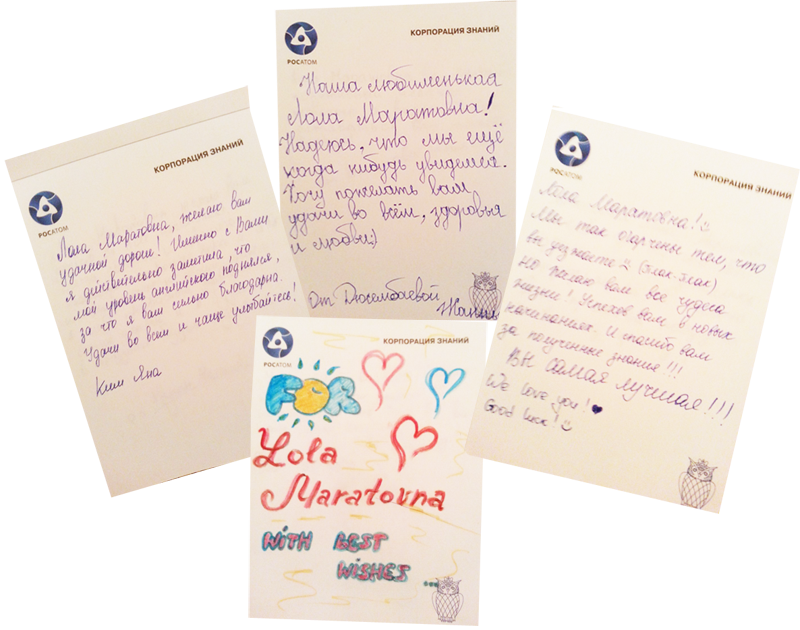 РОСАТОМ
КОРПОРАЦИЯ ЗНАНИЙ
Лола Маратовна, желаю вам
удачной дороги! Именно с Вами
я действительно заметила, что
мой уровень английского поднялся,
за что я вам сильно благодарна.
Удачи во всём и чаще улыбайтесь!
Ким Яна
РОСАТОМ
КОРПОРАЦИЯ ЗНАНИЙ
Наша любименькая
Лола Маратовна!
Надеюсь, что мы ещё
когда нибудь увидемся.
Хочу пожелать вам
удачи во всём, здоровья
и любви:)
От Дюсембаевой
Жанны
РОСАТОМ
КОРПОРАЦИЯ ЗНАНИЙ
Лола Маратовна!
Мы так огорчены тем, что
вы уезжаете (хлик-хлик)
но желаю вам все чудеса
жизни! Успехов вам в новых
начинаниях. И спасибо вам
за полученные знания!!!
Вы самая лучшая!!!
We love you! ♥
Good luck!
РОСАТОМ
КОРПОРАЦИЯ ЗНАНИЙ
FOR
Lola
Maratovna
WITH BEST
WISHES ...